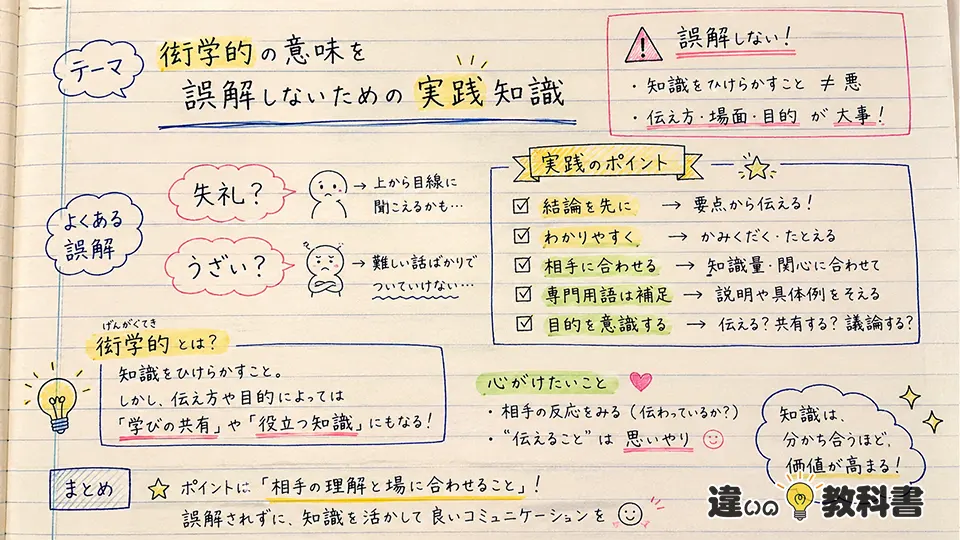 テーマ
街学的の意味を
誤解しないための 実践知識
誤解しない！
・知識をひけらかすこと ≠ 悪
・伝え方・場面・目的 が 大事！
よくある
誤解
失礼？
→ 上から目線に
聞こえるかも…
うざい？
→ 難しい話ばかりで
ついていけない…
実践のポイント
☑ 結論を先に → 要点から伝える！
☑ わかりやすく → かみくだく・たとえる
☑ 相手に合わせる → 知識量・関心に合わせて
☑ 専門用語は補足 → 説明や具体例をそえる
☑ 目的を意識する → 伝える？共有する？議論する？
げんがくてき
街学的とは？
知識をひけらかすこと。
しかし、伝え方や目的によっては
「学びの共有」や「役立つ知識」にもなる！
心がけたいこと
・相手の反応をみる（伝わっているか？）
・“伝えること”は 思いやり
知識は、
分かち合うほど、
価値が高まる！
まとめ
☆ ポイントは「相手の理解と場に合わせること」！
誤解されずに、知識を活かして良いコミュニケーションを
違いの教科書